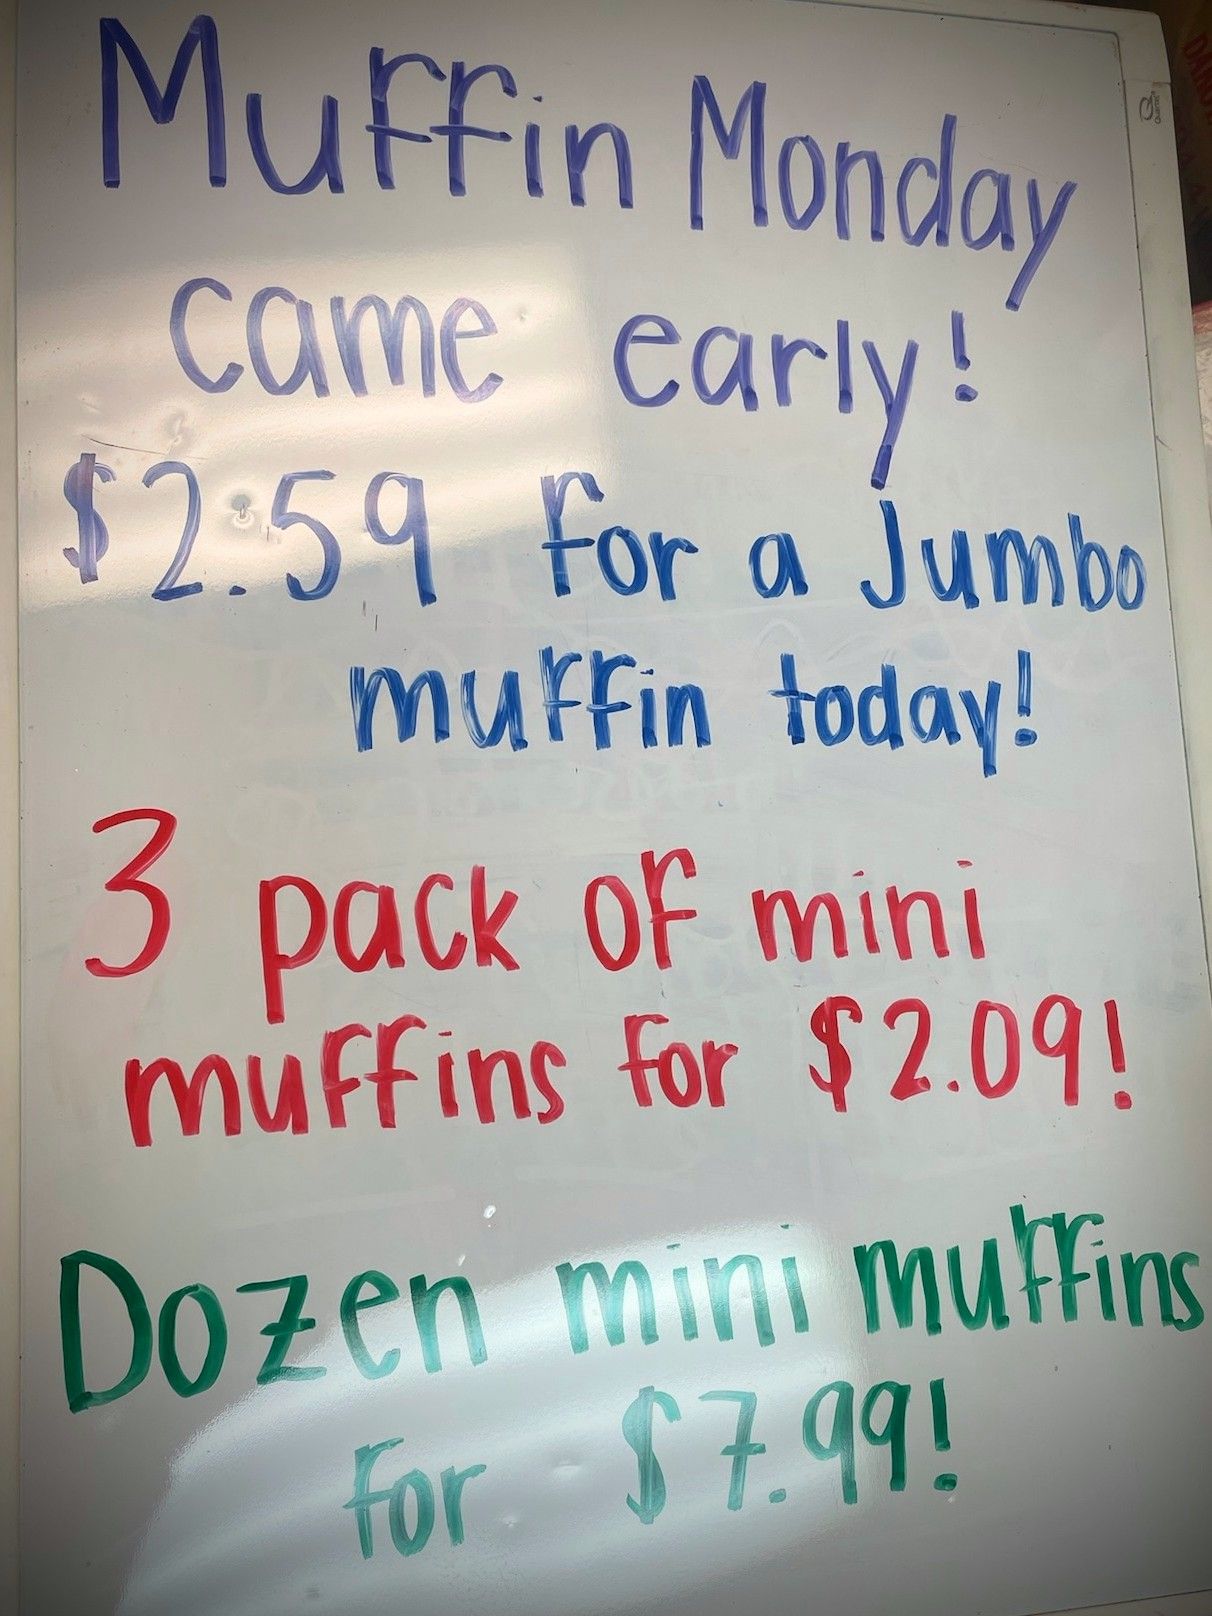 Muffin Monday
came early!
$2.59 for a jumbo
muffin today!
3 pack of mini
muffins for $2.09!
Dozen mini muffins
for $7.99!
Quartet